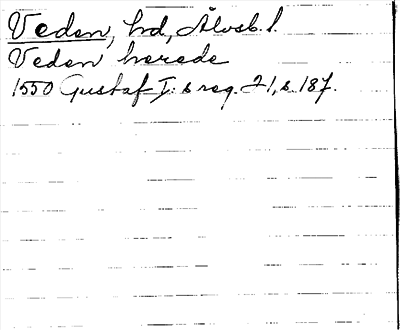 Veden, hd, Älvsb. l.
Veden herede
1550 Gustaf I:s reg. 21, s. 187.